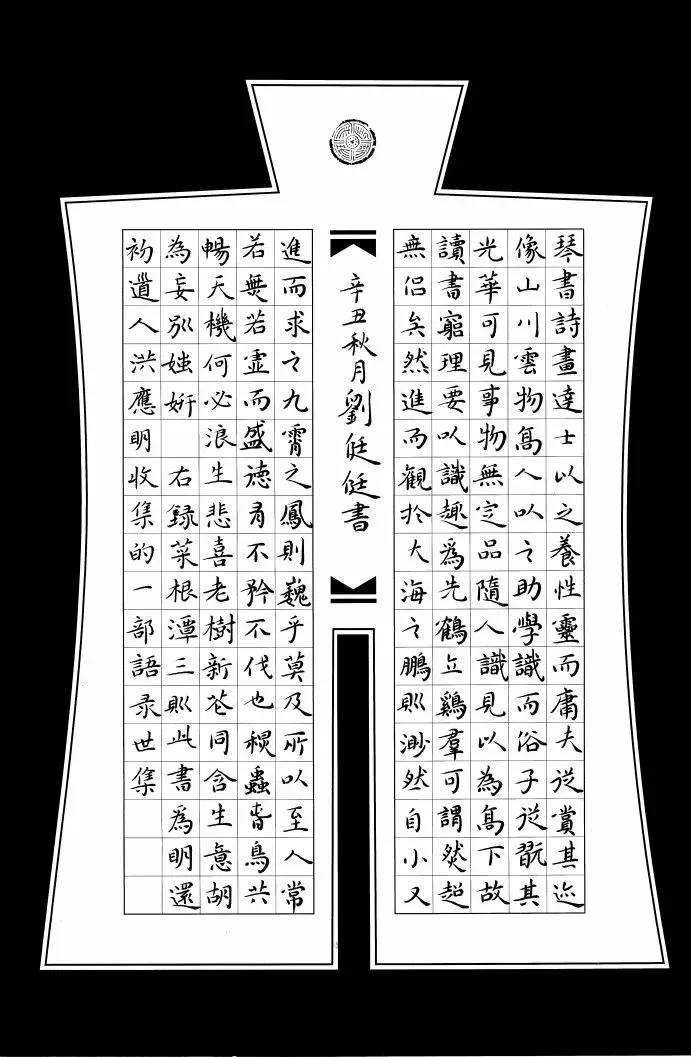 琴書詩畫達士以之養性靈而庸夫従賞其迹
像山川雲物髙人以之助學識而俗子従翫其
光華可見事物無定品隨人識見以為髙下故
讀書窮理要以識趣爲先鶴立鷄羣可謂然超
無侶矣然進而觀扵大海之鵬則渺然自小又
辛丑秋月劉侹侹書
進而求之九霄之鳳則巍乎莫及所以至人常
若無若虛而盛徳不矜不伐也蟲旾鳥共
暢天機何必浪生悲喜老樹新花同含生意胡
為妄別媸妍 右録菜根潭三則此書爲明還
初道人洪應明收集的一部語录世集